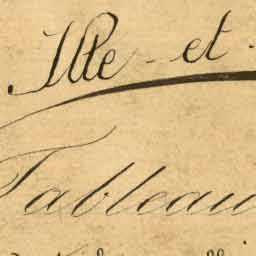 Ille - et -
Tableau